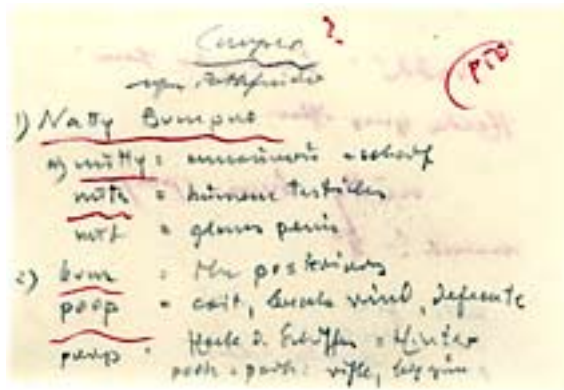 Cooper ?
PTO
1) Natty Bumppo
a) nutty: amorous
nuts = human testicles
nut = glans penis
2) bum : the posteriors
poop = coit, break wind, defecate
poop : Heck d. Schiffes = Hinter
pooh - pooh: rifle, big gun